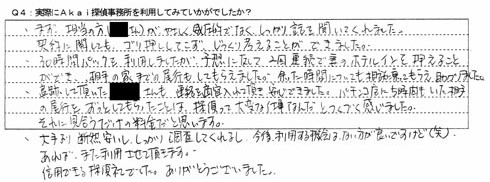 Q4：実際にAkai探偵事務所を利用してみていかがでしたか？
・まず、担当の方(さん)がやさしく感じがよくて、しっかり話を聞いてくれました。
契約に関しても、ゴリ押ししてこず、じっくり考えることができました。
・30時間パックを利用しましたが、予想に反して2回連続で妻のホテルインを押えること
ができ、相手の家までの尾行もしてもらえました。余った時間についても相談にのってもらえ、助かりました。
さんも、連絡を密に入れて頂き安心できました。パチンコ店にも何時間もいた相手
の尾行をずっとしてもらったことは、探偵って大変な仕事なんだとつくづく感じました。
それに見合うだけの料金だと思います。
・大手より断然安いし、しっかり調査してくれるし、今後、利用する機会はない方が良いですけど(笑)、
あれば、また利用させて頂きます。
信用できる探偵社でした。ありがとうございました。